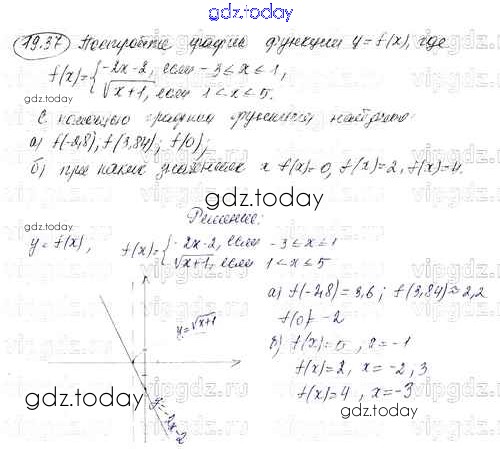 gdz.today
19.37 Постройте график функции y=f(x), где
f(x)={-2x-2, если -3≤x≤1,
√x+1, если 1<x≤5.
gdz.today
С помощью графика функции найдите:
а) f(-2,8), f(3,84); f(0);
gdz.today
б) при каких значениях x f(x)=0, f(x)=2, f(x)=4.
gdz.today
Решение:
y=f(x), f(x)={-2x-2, если -3≤x≤1
√x+1, если 1<x≤5
gdz.today
а) f(-2,8)=3,6; f(3,84)≈2,2
f(0)=-2
y=√x+1
б) f(x)=0, x=-1
f(x)=2, x=-2, 3
f(x)=4, x=-3
gdz.today
y=-2x-2
gdz.today
vipgdz.ru